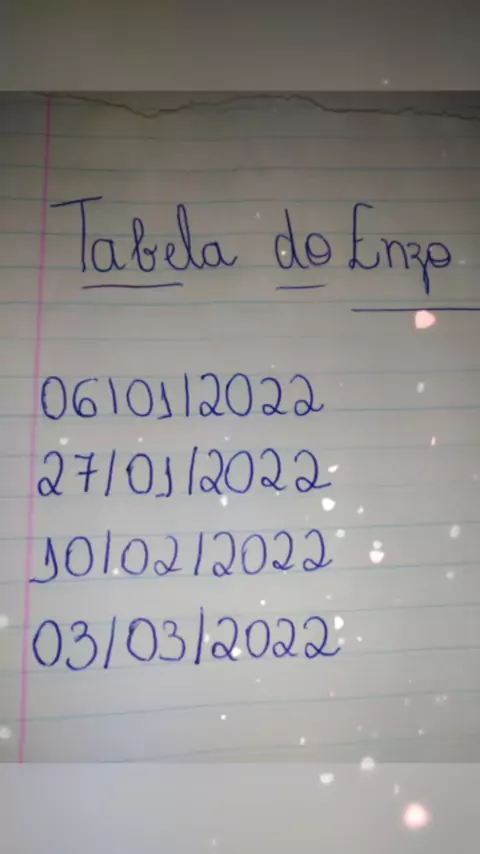 Tabela do Enzo
06/01/2022
27/01/2022
10/02/2022
03/03/2022